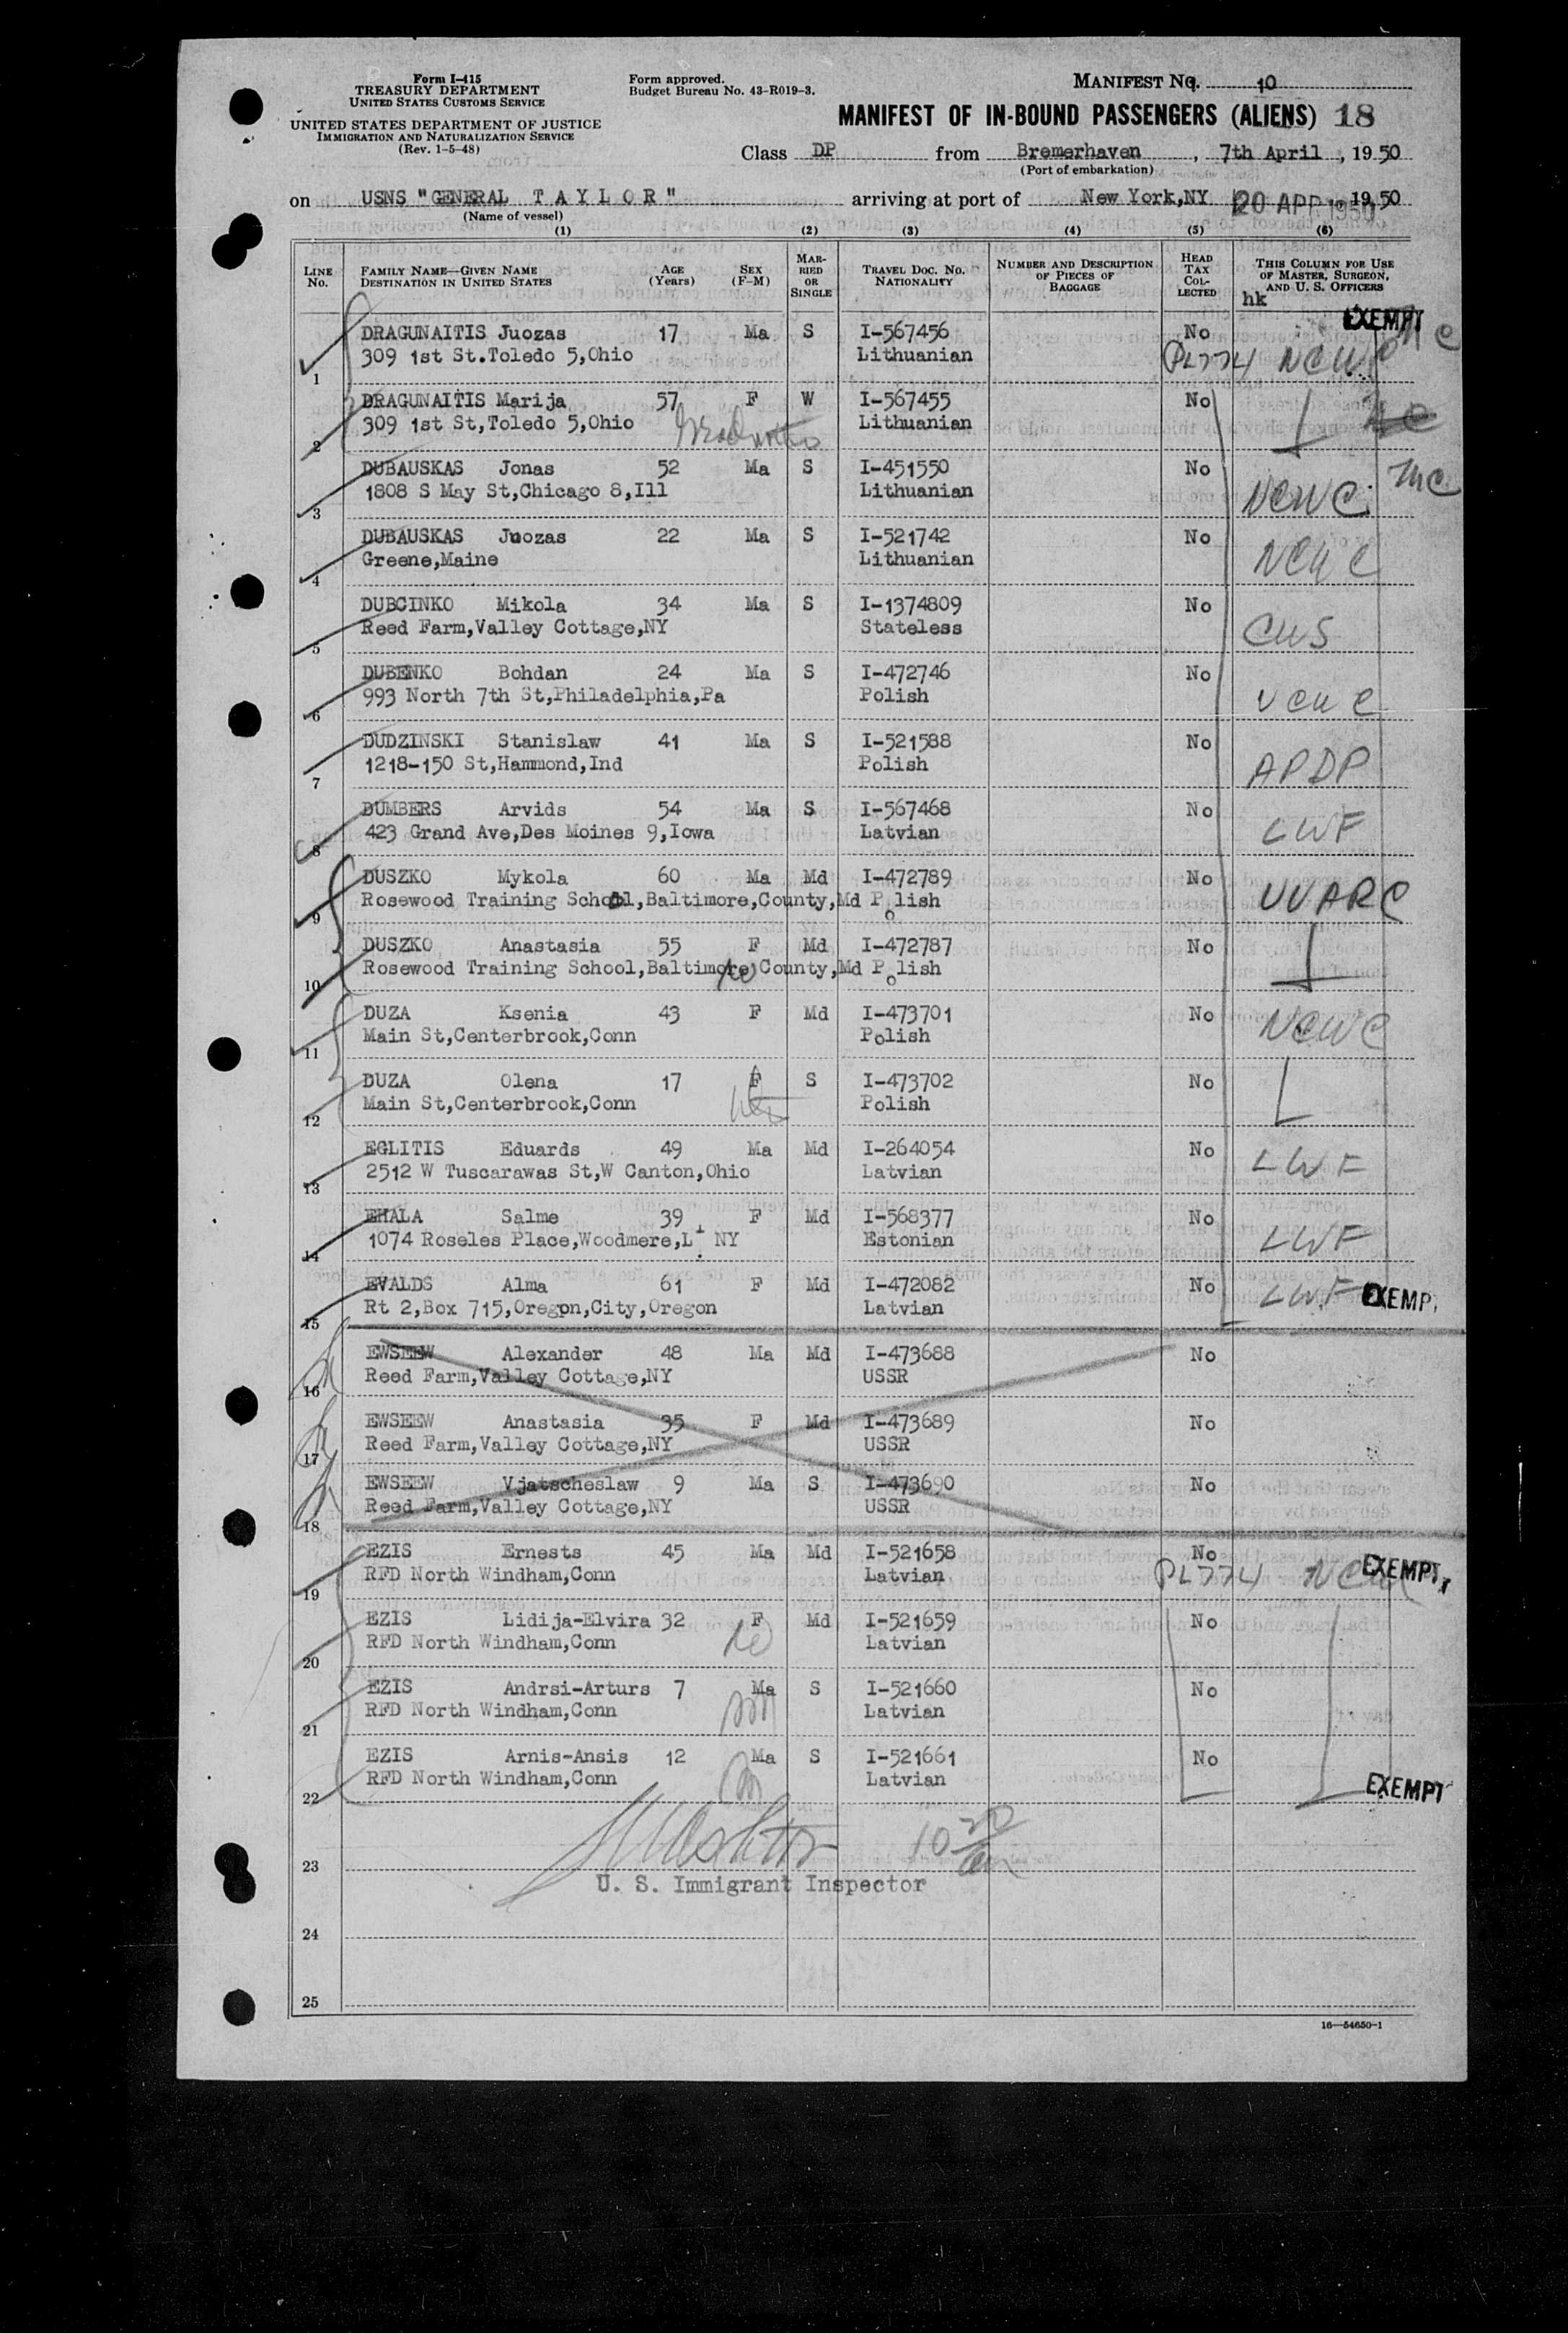 Form I-415
TREASURY DEPARTMENT
UNITED STATES CUSTOMS SERVICE
UNITED STATES DEPARTMENT OF JUSTICE
IMMIGRATION AND NATURALIZATION SERVICE
(Rev. 1-5-48)
Form approved.
Budget Bureau No. 43-R019-3.
MANIFEST No. 10
MANIFEST OF IN-BOUND PASSENGERS (ALIENS) 18
Class DP from Bremerhaven, 7th April, 1950
(Port of embarkation)
on USNS "GENERAL T A Y L O R" arriving at port of New York,NY 20 APR 1950, 1950
(Name of vessel)
(1) (2) (3) (4) (5) (6)
LINE No. FAMILY NAME—GIVEN NAME DESTINATION IN UNITED STATES AGE (Years) SEX (F-M) MARRIED OR SINGLE TRAVEL DOC. No. NATIONALITY NUMBER AND DESCRIPTION OF PIECES OF BAGGAGE HEAD TAX COLLECTED THIS COLUMN FOR USE OF MASTER, SURGEON, AND U. S. OFFICERS
hk
EXEMPT
DRAGUNAITIS Juozas 17 Ma S I-567456 No
1 309 1st St.Toledo 5,Ohio Lithuanian PL774 NCWC
DRAGUNAITIS Marija 57 F W I-567455 No
2 309 1st St,Toledo 5,Ohio Lithuanian
DUBAUSKAS Jonas 52 Ma S I-451550 No
3 1808 S May St,Chicago 8,Ill Lithuanian NCWC
DUBAUSKAS Juozas 22 Ma S I-521742 No
4 Greene,Maine Lithuanian NCWC
DUBCINKO Mikola 34 Ma S I-1374809 No
5 Reed Farm,Valley Cottage,NY Stateless CWS
DUBENKO Bohdan 24 Ma S I-472746 No
6 993 North 7th St,Philadelphia,Pa Polish
DUDZINSKI Stanislaw 41 Ma S I-521588 No
7 1218-150 St,Hammond,Ind Polish APDP
DUMBERS Arvids 54 Ma S I-567468 No
8 423 Grand Ave,Des Moines 9,Iowa Latvian LWF
DUSZKO Mykola 60 Ma Md I-472789 No
9 Rosewood Training School,Baltimore,County,Md Polish UUARC
DUSZKO Anastasia 55 F Md I-472787 No
10 Rosewood Training School,Baltimore,County,Md Polish
DUZA Ksenia 43 F Md I-473701 No
11 Main St,Centerbrook,Conn Polish NCWC
DUZA Olena 17 F S I-473702 No
12 Main St,Centerbrook,Conn Polish
EGLITIS Eduards 49 Ma Md I-264054 No
13 2512 W Tuscarawas St,W Canton,Ohio Latvian LWF
EHALA Salme 39 F Md I-568377 No
14 1074 Roseles Place,Woodmere,LI NY Estonian LWF
EVALDS Alma 61 F Md I-472082 No
15 Rt 2,Box 715,Oregon,City,Oregon Latvian LWF EXEMP
EWSEEW Alexander 48 Ma Md I-473688 No
16 Reed Farm,Valley Cottage,NY USSR
EWSEEW Anastasia 35 F Md I-473689 No
17 Reed Farm,Valley Cottage,NY USSR
EWSEEW Vjatscheslaw 9 Ma S I-473690 No
18 Reed Farm,Valley Cottage,NY USSR
EZIS Ernests 45 Ma Md I-521658 No
19 RFD North Windham,Conn Latvian PL774 NCWC EXEMPT
EZIS Lidija-Elvira 32 F Md I-521659 No
20 RFD North Windham,Conn Latvian
EZIS Andrsi-Arturs 7 Ma S I-521660 No
21 RFD North Windham,Conn Latvian
EZIS Arnis-Ansis 12 Ma S I-521661 No
22 RFD North Windham,Conn Latvian EXEMPT
23
U. S. Immigrant Inspector
24
25
16—54650-1